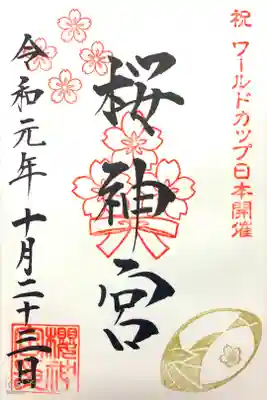 祝 ワールドカップ日本開催
桜神宮
令和元年 十月二十三日